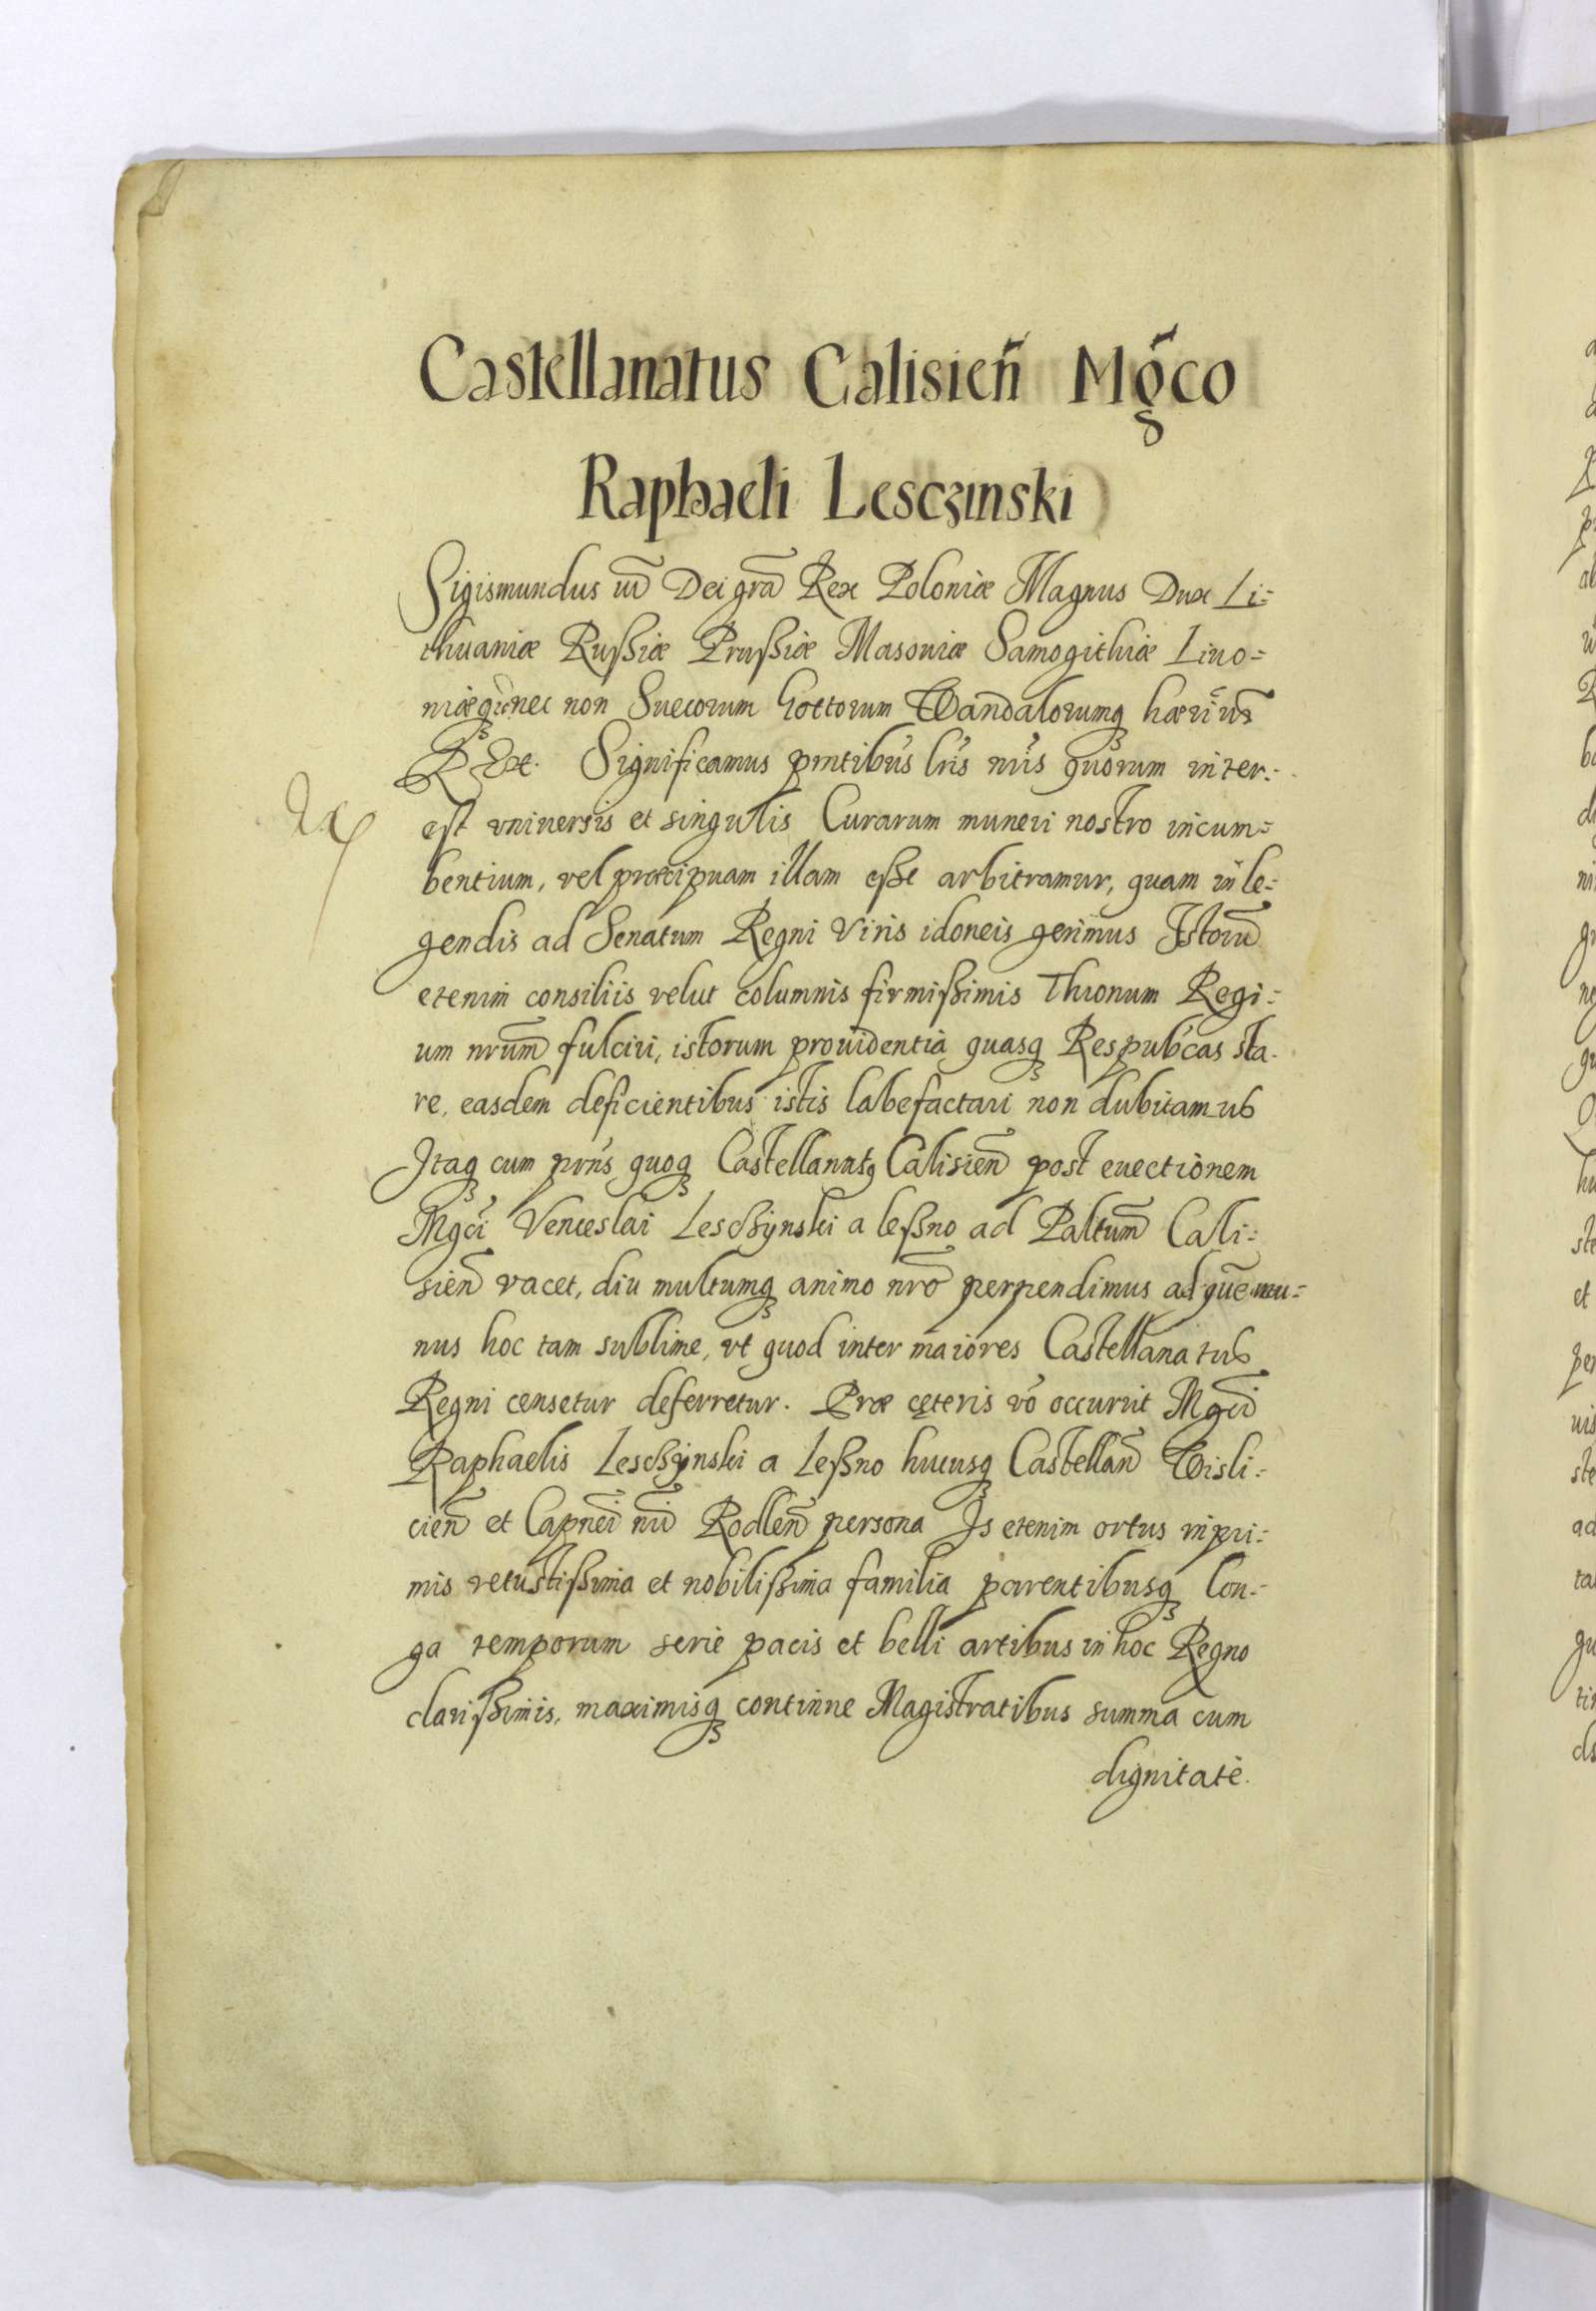 Castellanatus Calisień Mg̃co
Raphaeli Lesczinski
Sigismundus iii Dei grã Rex Poloniæ Magnus Dux Li=
thuaniæ Rußiæ Prußiæ Masoviæ Samogithiæ Livo=
niæq; nec non Suecorum Gottorum Wandalorumq;
REx. Significamus pñtibus lr̃is nr̃is quorum inter=
est vniuersis et singulis Curarum muneri nostro incum=
bentium, vel præcipuam illam eße arbitramur, quam in le=
gendis ad Senatum Regni Viris idoneis gerimus Istorũ
etenim consiliis velut columnis firmißimis Thronum Regi=
um nrũm fulciri, istorum prouidentia quasq; Respubcas sta-
re, easdem deficientibus istis labefactari non dubitamus
Itaq; cum prñs quoq; Castellanatq Calisieñ post euectionem
Mgci Venceslai Lesczÿnski a leßno ad Paltum̃ Cali=
sieñ vacet, diu multumq; animo nrõ perpendimus ad quẽ mu=
nus hoc tam sublime, vt quod inter maiores Castellanatus
Regni censetur deferretur. Præ cęteris võ occurrit Mgci
Raphaelis Lesczÿnski a Leßno hucusq; Castellañ Wisli=
cieñ et Capnei nri Rodleñ persona Is etenim ortus inpri=
mis vetustißima et nobilißima familia parentibusq; lon=
ga temporum serie pacis et belli artibus in hoc Regno
clarißimis, maximisq; continue Magistratibus summa cum
dignitate.